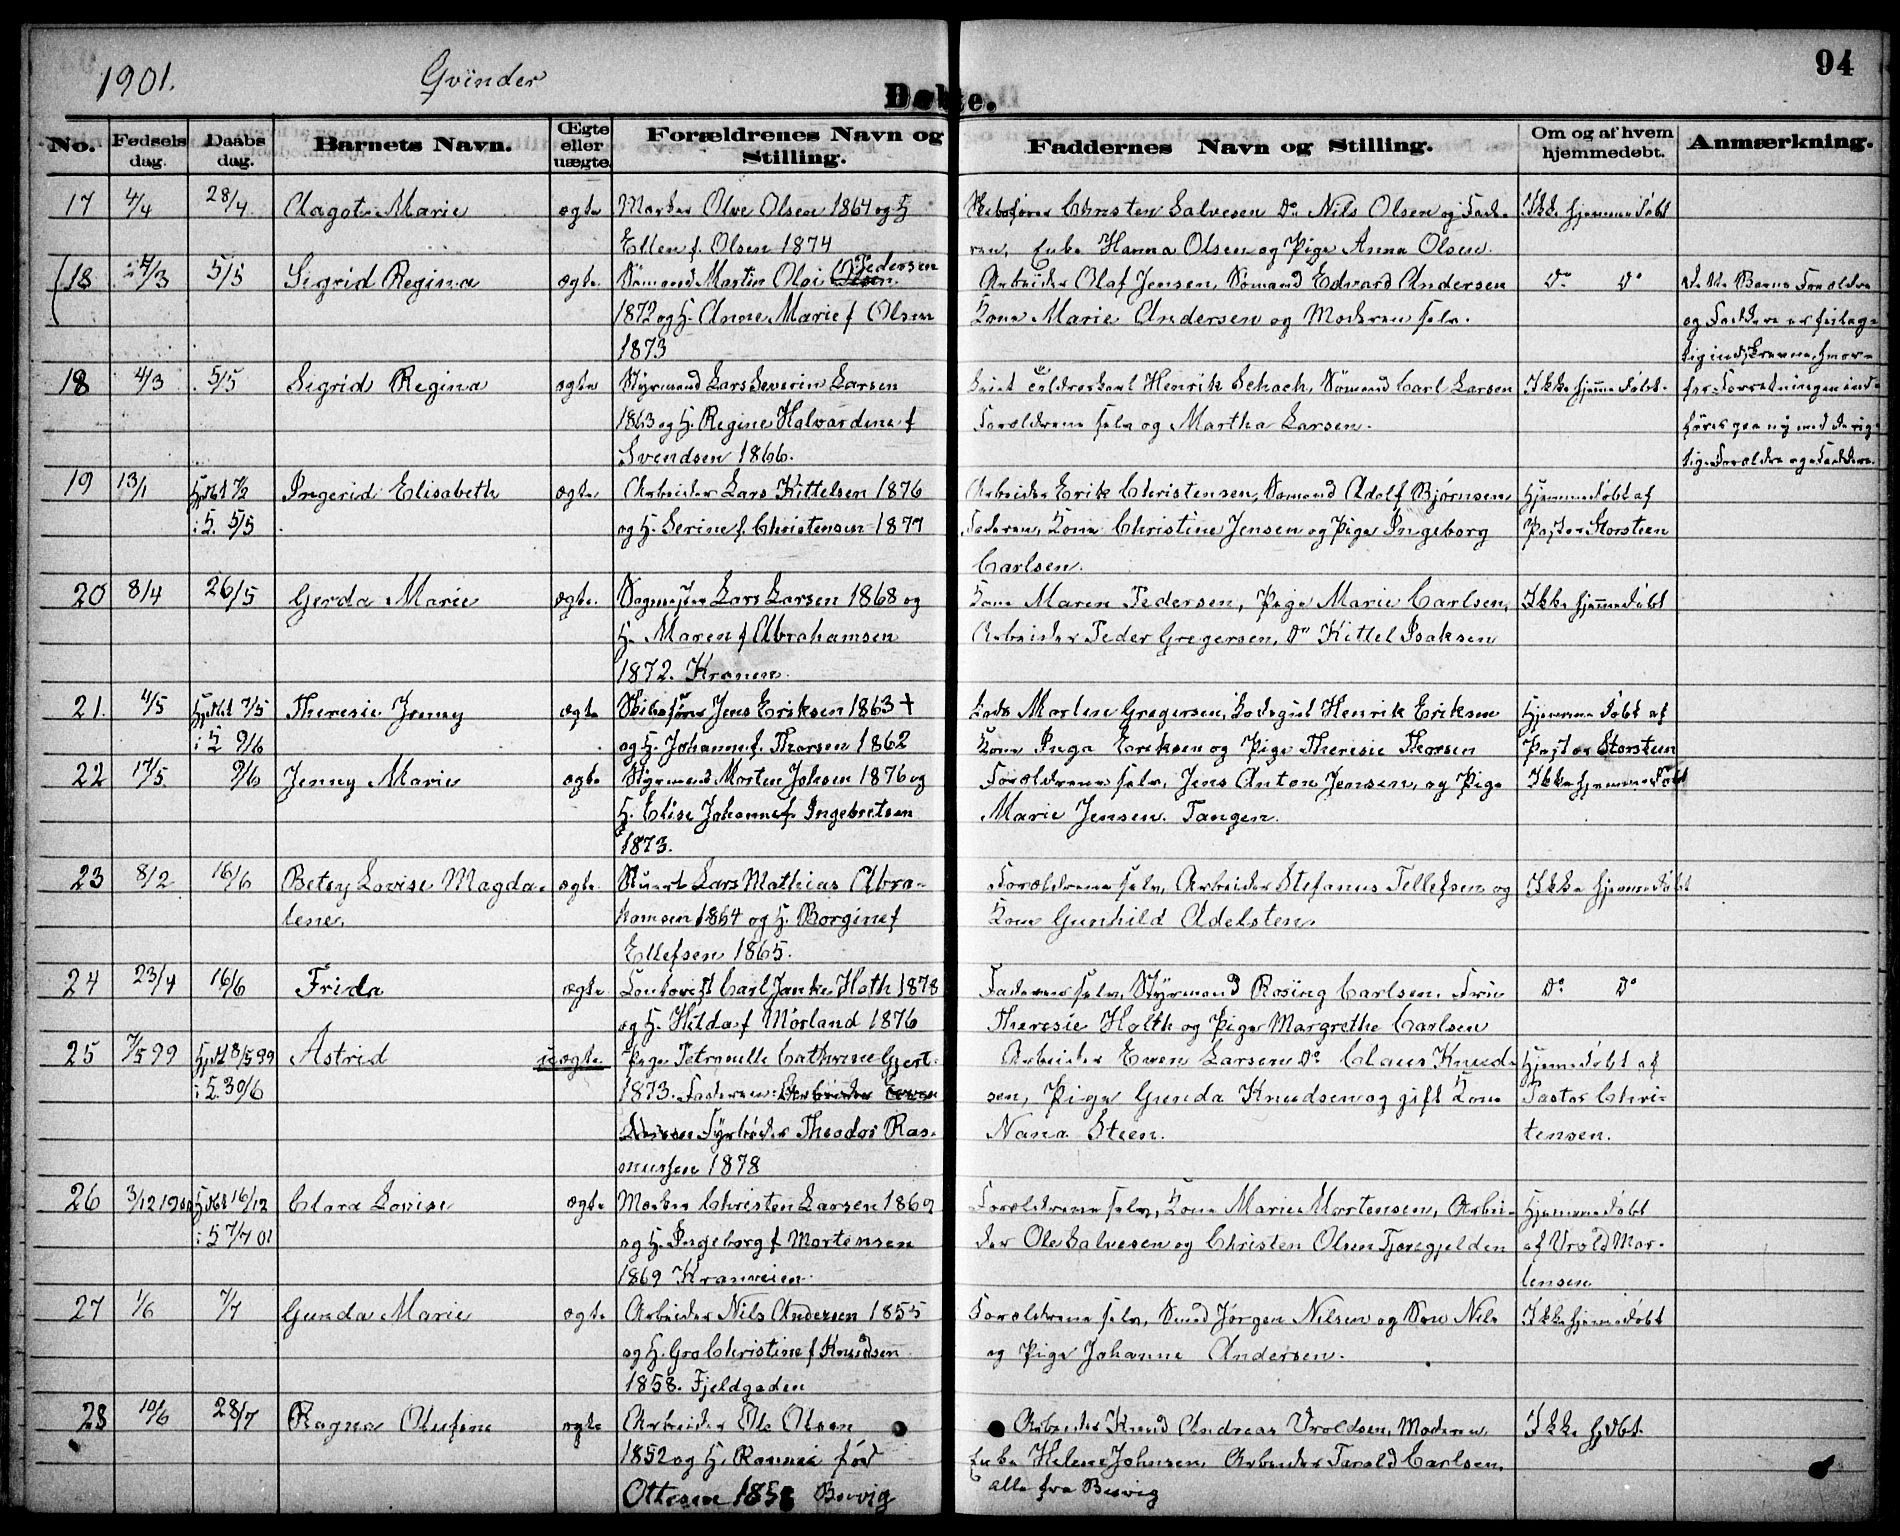 1901.
Qvinder
Døbte.
94
No. Fødsels dag. Daabs dag. Barnets Navn. Ægte eller uægte. Forældrenes Navn og Stilling. Faddernes Navn og Stilling. Om og af hvem hjemmedøbt. Anmærkning.
17 4/4 28/4 Aagot Marie ægte Olve Olsen 1864 og H. Christen Salvesen Do Nils Olsen og Fade- Ikke hjemmedøbt
Ellen f. Olsen 1874 ren, Enke Hanna Olsen og Pige Anna Olsen.
18 /3 5/5 Sigrid Regina ægte. Sømand Martin Olai Olsen Pedersen Arbeider Olaf Jensen, Sømand Edvard Andersen Do Do
1872 og H. Anne Marie f Olsen Kone Marie Andersen og Moderen selv. og Faddere er feilag-
1873 tig indskrevne, hvor-
18 4/3 5/5 Sigrid Regina ægte Styrmand Lars Severin Larsen Henrik Schach, Sømand Carl Larsen Ikke hjemmedøbt. for Forretningen ind-
1863 og H. Regine Halvardine f Forældrene selv og Martha Larsen. føres paa ny med de rig-
Svendsen 1866. tige Forældre og Faddere.
19 13/1 Hjdbt 7/2 Ingerid Elisabeth ægte Arbeider Lars Kittelsen 1876 Arbeider Erik Christensen, Sømand Adolf Bjørnsen, Hjemmedøbt af
i K. 5/5 og H. Serine f. Christensen 1877 Faderen, Kone Christine Jensen og Pige Ingeborg Pastor Storsteen
Carlsen.
20 8/4 26/5 Gerda Marie ægte. Lars Larsen 1868 og Kone Maren Pedersen, Pige Marie Carlsen, Ikke hjemmedøbt
H. Maren f Abrahamsen Arbeider Peder Gregersen, Do Kittel Isaksen
1872. Kranen.
21. 4/5 Hjdbt 7/5 Theresie Jenny ægte Skibsfører Jens Eriksen 1863 + Morten Gregersen, Henrik Eriksen Hjemmedøbt af
i K 9/6 og H. Johanne f. Thorsen 1862 Kone Inga Eriksen og Pige Theresie Thorsen Pastor Storsteen
22 17/5 9/6 Jenny Marie ægte Styrmand Morten Johsen 1876 og Forældrene selv, Jens Anton Jensen, og Pige Ikke hjemmedøbt
H. Elise Johanne f. Ingebretsen Marie Jensen. Tangen.
1873.
23 8/2 16/6 Betsy Lovise Magda- ægte. Stuert Lars Mathias Abra- Forældrene selv, Arbeider Stefanus Tellefsen og Ikke hjemmedøbt
lene. hamsen 1864 og H. Borgine f Kone Gunhild Adelsten.
Ellefsen 1865.
24 23/4 16/6 Frida ægte Kontorist Carl Janke Hoth 1878 Faderen selv, Styrmand Rosing Carlsen, Do Do
og H. Hilda f Mørland 1876 Theresie Holth og Pige Margrethe Carlsen
25 7/5 99 Hjdbt 8/5 99 Astrid uægte. Pige Petronelle Cathrine Gjert- Arbeider Even Larsen Do Claus Knud- Hjemmedøbt af
i K. 30/6 1873. Faderen: Arbeider Even sen, Pige Gunda Knudsen og gift Kone Pastor Chri-
Larsen Fyrbøder Theodor Ras- Nana Steen. tensen.
mussen 1878
26 3/12 1900 Hjdbt 16/12 Clara Lovise ægte Christen Larsen 1869 Forældrene selv, Kone Marie Mortensen, Arbei- Hjemmedøbt
i K 7/7 01 og H. Ingeborg f Mortensen der Ole Salvesen og Christen Olsen Tjeregjelden af Urold Mor-
1869 Kranveien. tensen
27 1/6 7/7 Gunda Marie ægte Arbeider Nils Andersen 1855 Forældrene selv, Smed Jørgen Nilsen og Søn Nils Ikke hjemmedøbt
og H. Gro Christine f Knudsen og Pige Johanne Andersen.
1858. Fjeldgaden
28 10/6 28/7 Ragna Olufine ægte Arbeider Ole Olsen Arbeider Knud Andreas Uroldsen, Moderen Ikke hjdbt.
1852 og H. Ronnie fød Enke Helene Johnsen, Arbeider Tarald Carlsen,
Ottesen Bosvig alle fra Bosvig